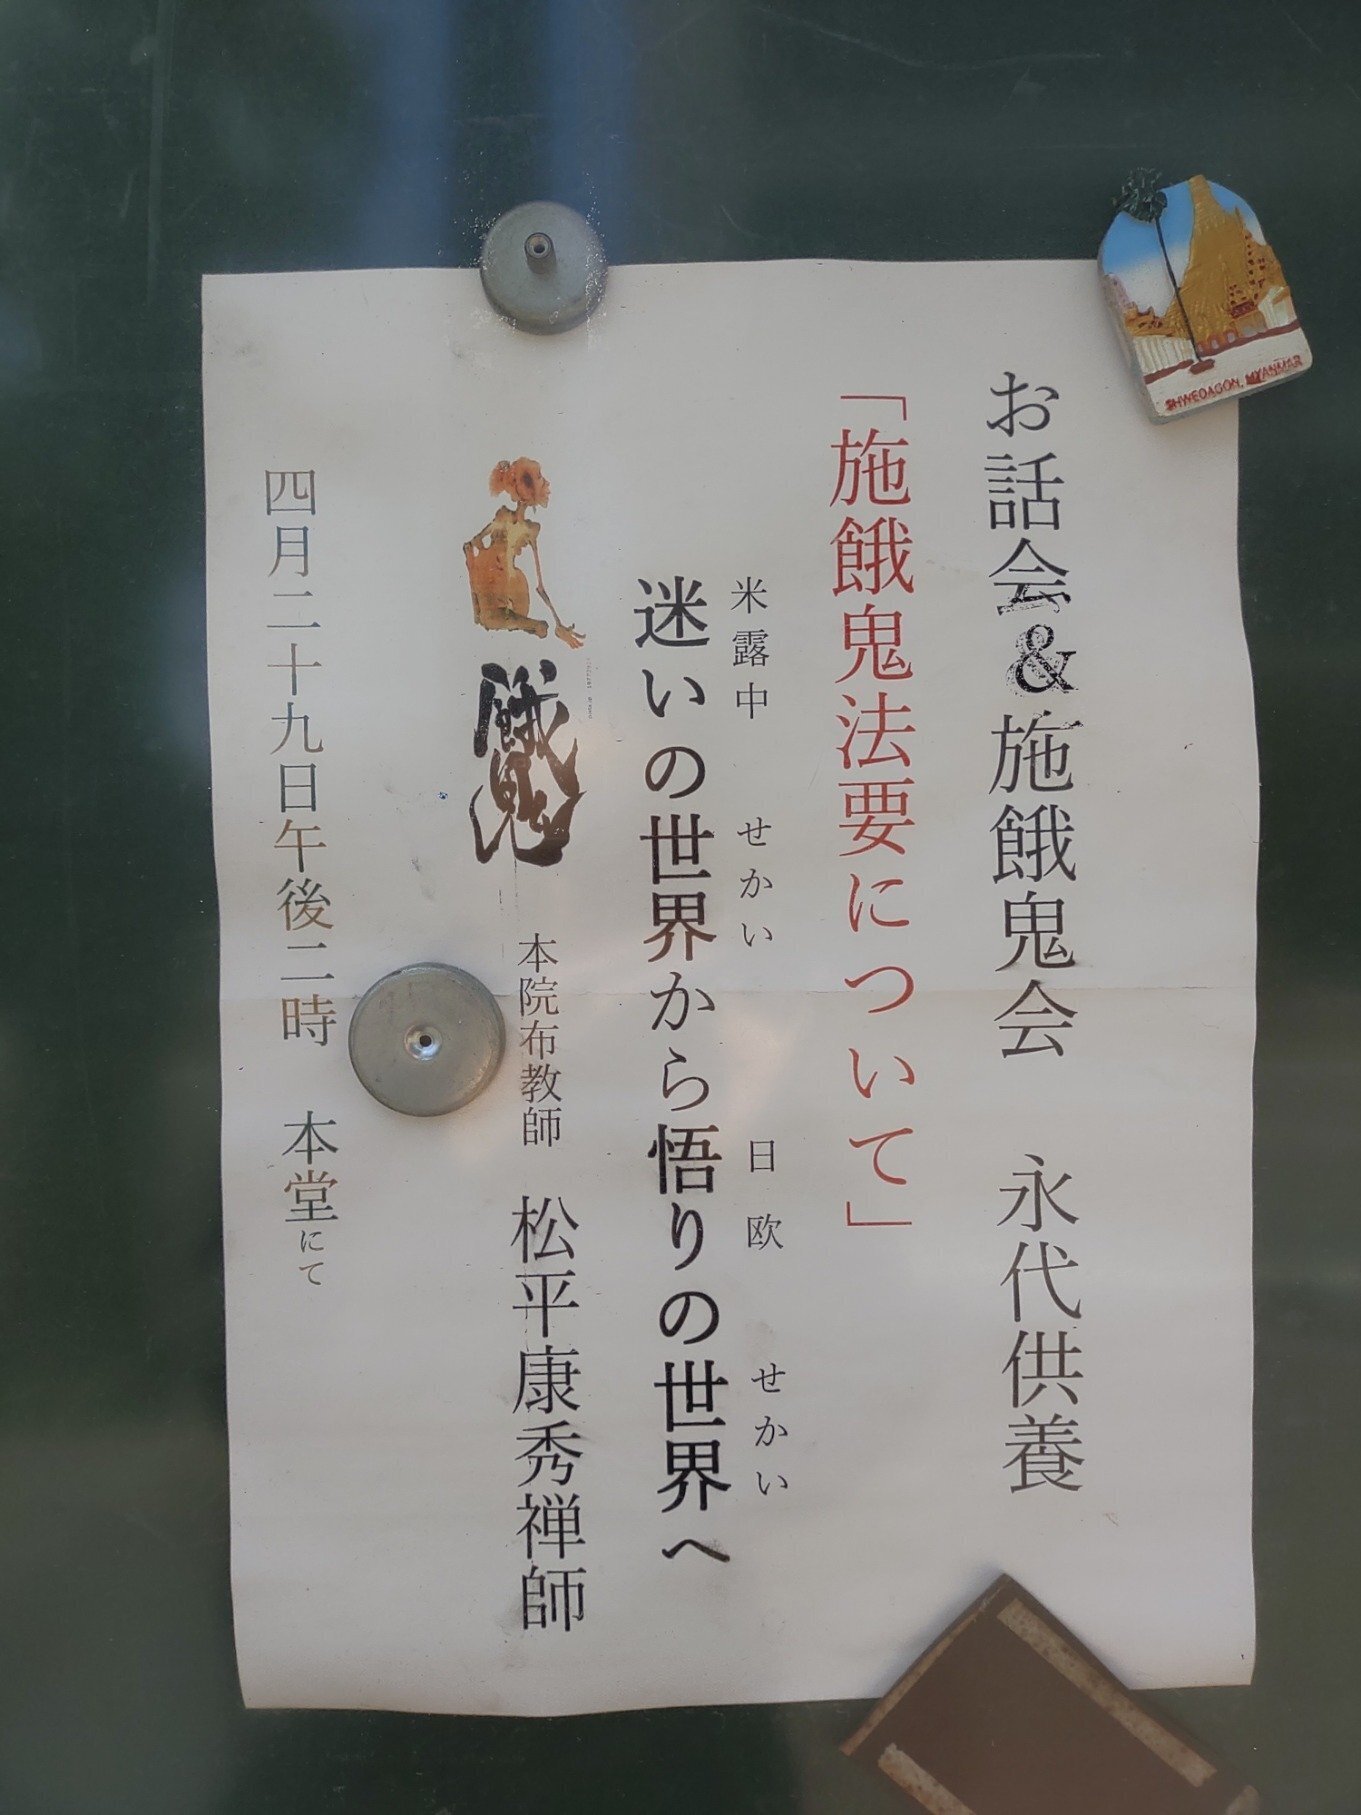 お話会&施餓鬼会　永代供養
「施餓鬼法要について」
米露中　せかい　日欧　せかい
迷いの世界から悟りの世界へ
餓鬼
本院布教師　松平康秀禅師
四月二十九日午後二時　本堂にて
SHWEDAGON, MYANMAR